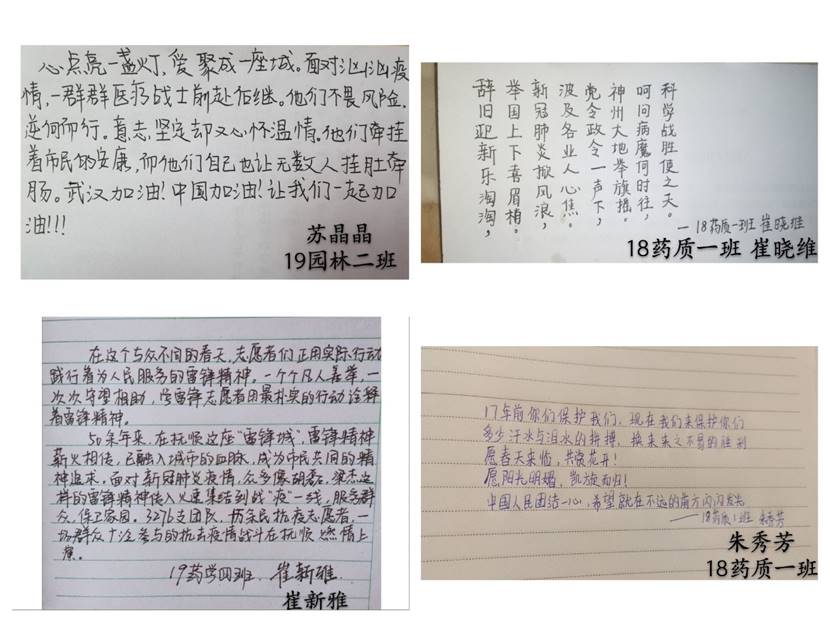 心点亮一盏灯,爱聚成一座城。面对汹汹疫
情,一群群医疗战士前赴后继。他们不畏风险,
逆向而行。意志坚定却又心怀温情。他们牵挂
着市民的安康,而他们自己也让无数人挂肚牵
肠。武汉加油!中国加油!让我们一起加
油!!!
苏晶晶
19园林二班
辞旧迎新乐淘淘,
举国上下喜眉梢。
新冠肺炎掀风浪,
波及各业人心焦。
党令政令一声下,
神州大地举旗摇。
呵问病魔何时往,
科学战胜便之夭。
—18药质一班 崔晓维
18药质一班 崔晓维
在这个与众不同的春天,志愿者们正用实际行动
践行着为人民服务的雷锋精神。一个个凡人善举,一
次次守望相助,雷锋志愿者用最朴实的行动诠释
着雷锋精神。
50余年来,在抚顺这座“雷锋城”,雷锋精神
薪火相传,已融入城市的血脉,成为市民共同的精
神追求。面对新冠肺炎疫情,众多像胡磊、这
样的雷锋精神传人火速集结到战“疫”一线,服务群
众,保卫家园。3276支团队,万余民抗疫志愿者,一
场群众广泛参与的抗击疫情战斗在抚顺燃情上
演。
19药学四班.崔新雅.
崔新雅
17年前你们保护我们,现在我们来保护你们
多少汗水与泪水的拼搏,换来来之不易的胜利
愿春天来临,共赏花开!
愿阳光明媚,凯旋而归!
中国人民团结一心,希望就在不远的前方闪闪发光
——18药质1班 朱秀芳
朱秀芳
18药质一班